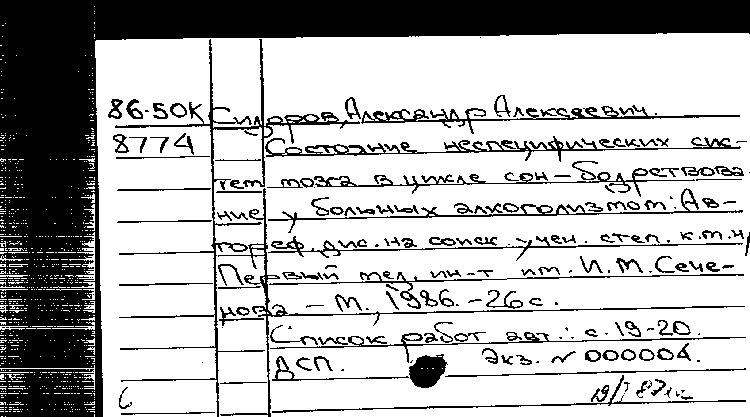 86-50К Сидоров, Александр Алексеевич.
8774 Состояние неспецифических сис-
тем мозга в цикле сон – бодрствова-
ние у больных алкоголизмом: Ав-
тореф. дис. на соиск. учен. степ. к.м.н/
Первый мед. ин-т им. И.М. Сече-
нова. – М., 1986. – 26 с.
Список работ авт.: с. 19-20.
ДСП. Экз. № 000004.
6